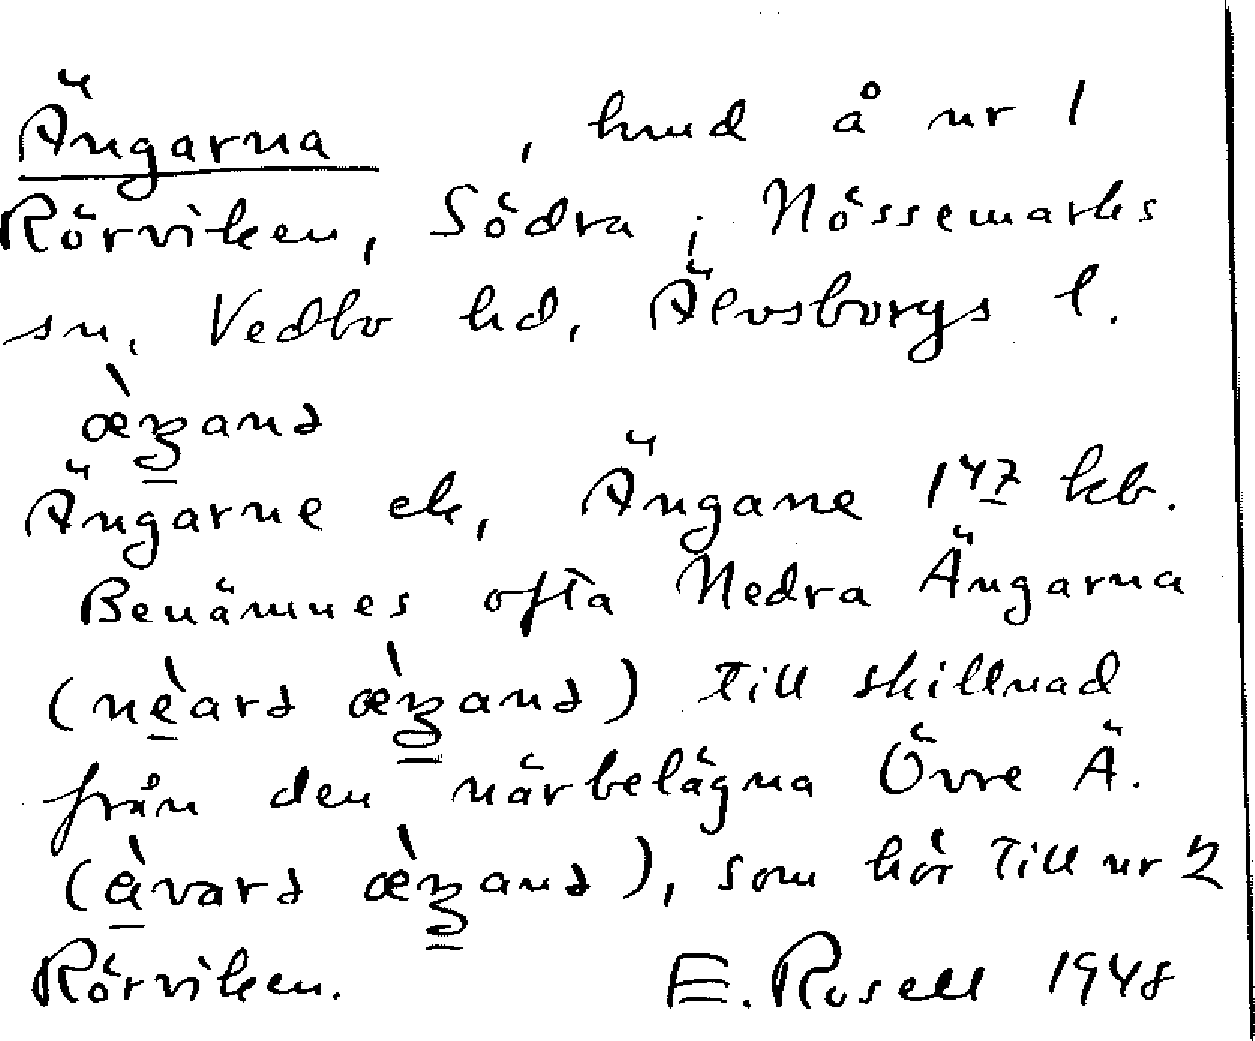 Ängarna, hmd å nr 1
Rörviken, Södra i Nössemarks
sn, Vedbo hd, Älvsborgs l.
æ̀ŋanə
Ängarne ek, Ängane 147 kb.
Benämnes ofta Nedra Ängarna
(nèarə æ̀ŋanə) till skillnad
från den närbelägna Övre Ä.
(àvarə æ̀ŋanə), som hör till nr 2
Rörviken. E. Rosell 1948